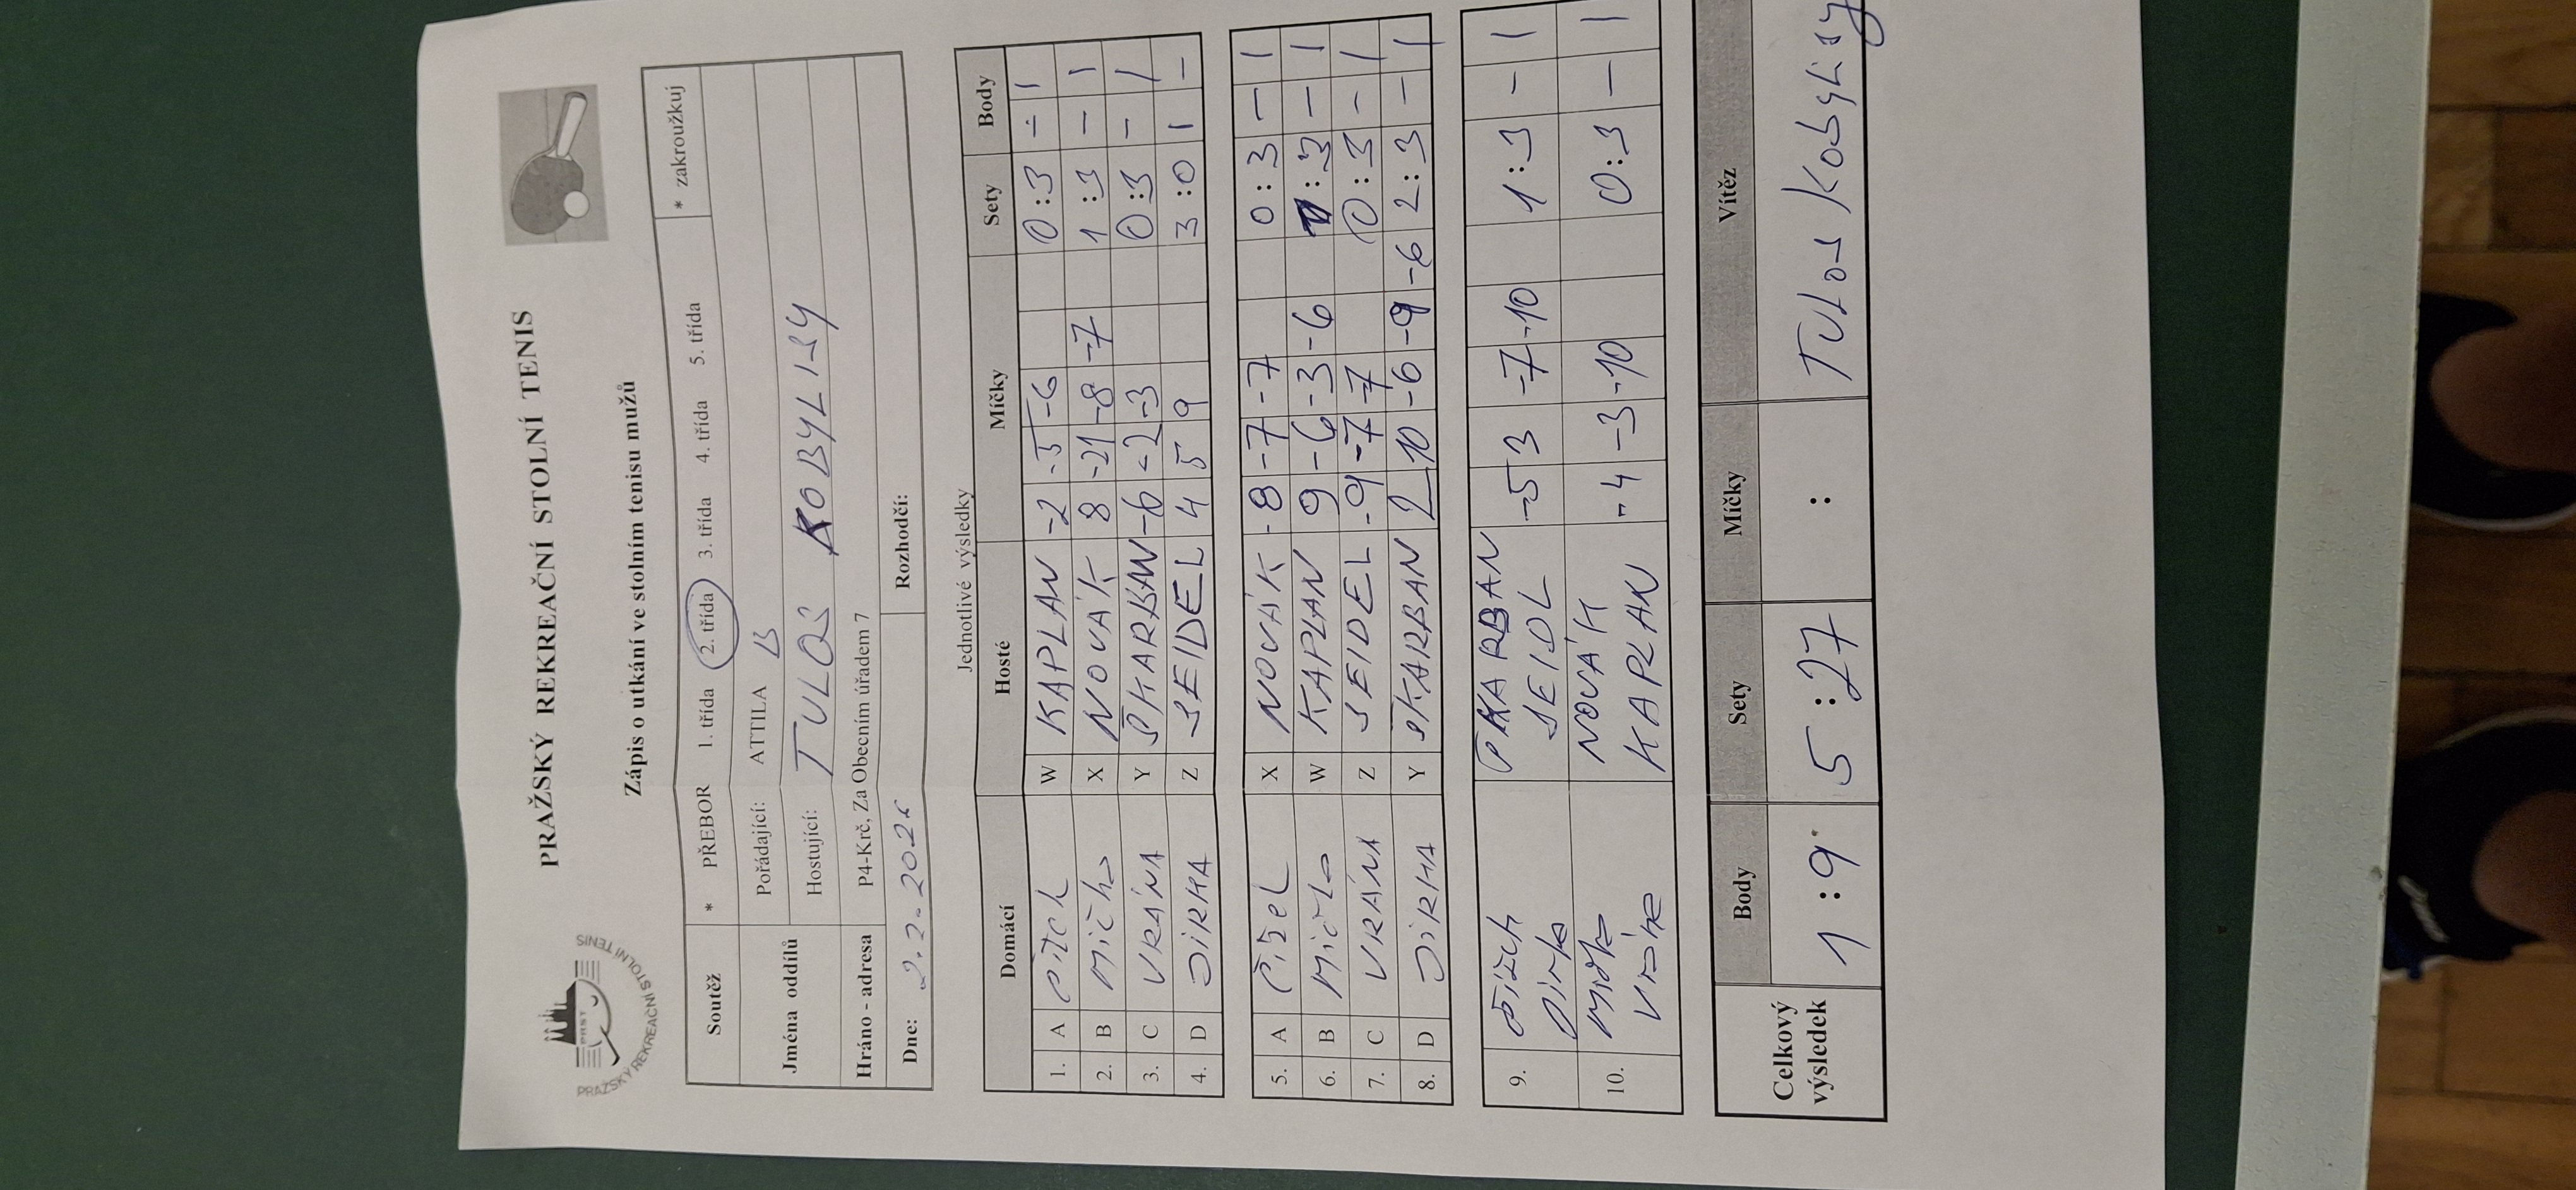 PRAŽSKÝ REKREAČNÍ STOLNÍ TENIS
PRST
PRAŽSKÝ REKREAČNÍ STOLNÍ TENIS
Zápis o utkání ve stolním tenisu mužů
Soutěž * PŘEBOR 1. třída 2. třída 3. třída 4. třída 5. třída * zakroužkuj
Jména oddílů Pořádající: ATTILA B
Hostující: TULOS KOBYLISY
Hráno - adresa P4-Krč, Za Obecním úřadem 7
Dne: 2.2.2026 Rozhodčí:
Jednotlivé výsledky
Domácí Hosté Míčky Sety Body
1. A W KAPLAN -2 -5 -6 0:3 - 1
2. B X NOVÁK 8 -21 -8 -7 1:3 - 1
3. C VRÁNA Y ŠKARBAN -6 -2 -3 0:3 - 1
4. D JIRKA Z SEIDEL 4 5 9 3:0 1 -
5. A Čížel X NOVÁK -8 -7 -7 0:3 - 1
6. B W KAPLAN 9 -6 -3 -6 1:3 - 1
7. C VRÁNA Z SEIDEL -9 -7 -7 0:3 - 1
8. D JIRKA Y ŠKARBAN 2 10 -6 -9 -6 2:3 - 1
9. ŠKARBAN -5 3 -7 -10 1:3 - 1
SEIDL
10. NOVÁK -4 -3 -10 0:3 - 1
KAPLAN
Celkový výsledek Body Sety Míčky Vítěz
1:9 5:27 : Tulos Kobylisy